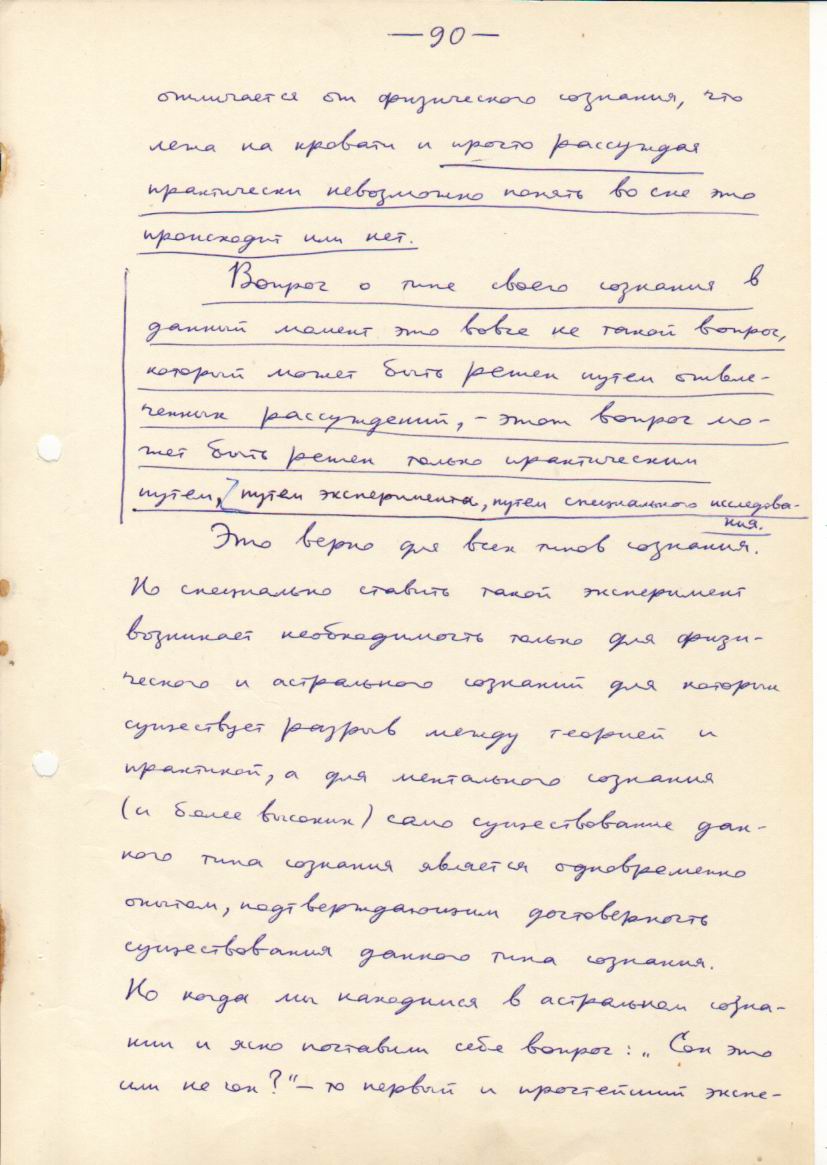 — 90 —
отличается от физического сознания, что
лежа на кровати и просто рассуждая
практически невозможно понять во сне это
происходит или нет.
Вопрос о типе своего сознания в
данный момент это вовсе не такой вопрос,
который может быть решен путем отвле-
ченных рассуждений, – этот вопрос мо-
жет быть решен только практическим
путем, путем эксперимента, путем специального исследова-
ния.
Это верно для всех типов сознания.
Но специально ставить такой эксперимент
возникает необходимость только для физи-
ческого и астрального сознаний для которых
существует разрыв между теорией и
практикой, а для ментального сознания
(и более высоких) само существование дан-
ного типа сознания является одновременно
опытом, подтверждающим достоверность
существования данного типа сознания.
Но когда мы находимся в астральном созна-
нии и ясно поставили себе вопрос: „Сон это
или не сон?" – то первый и простейший экспе-